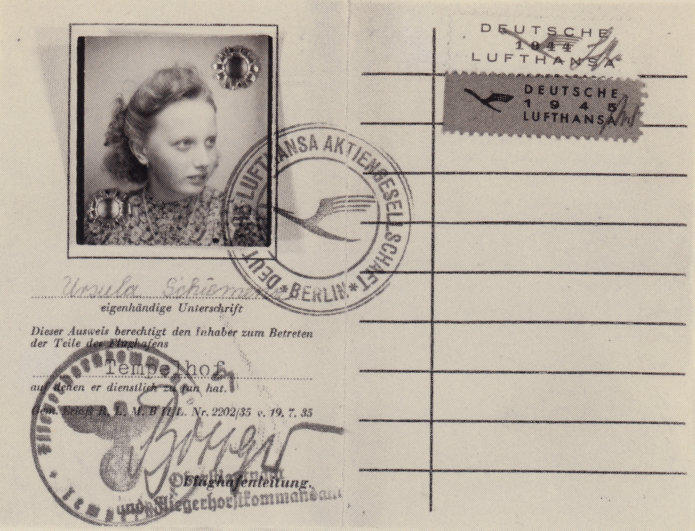 DEUTSCHE
1944
LUFTHANSA
DEUTSCHE
1945
LUFTHANSA
DEUTSCHE LUFTHANSA AKTIENGESELLSCHAFT
* BERLIN *
Ursula
eigenhändige Unterschrift
Dieser Ausweis berechtigt den Inhaber zum Betreten
der Teile des Flughafens
Tempelhof
auf denen er dienstlich zu tun hat.
Gem. Erlaß R. L. M. B II/L. Nr. 2202/35 v. 19. 7. 35
Flughafenleitung.
und Fliegerhorstkommandant